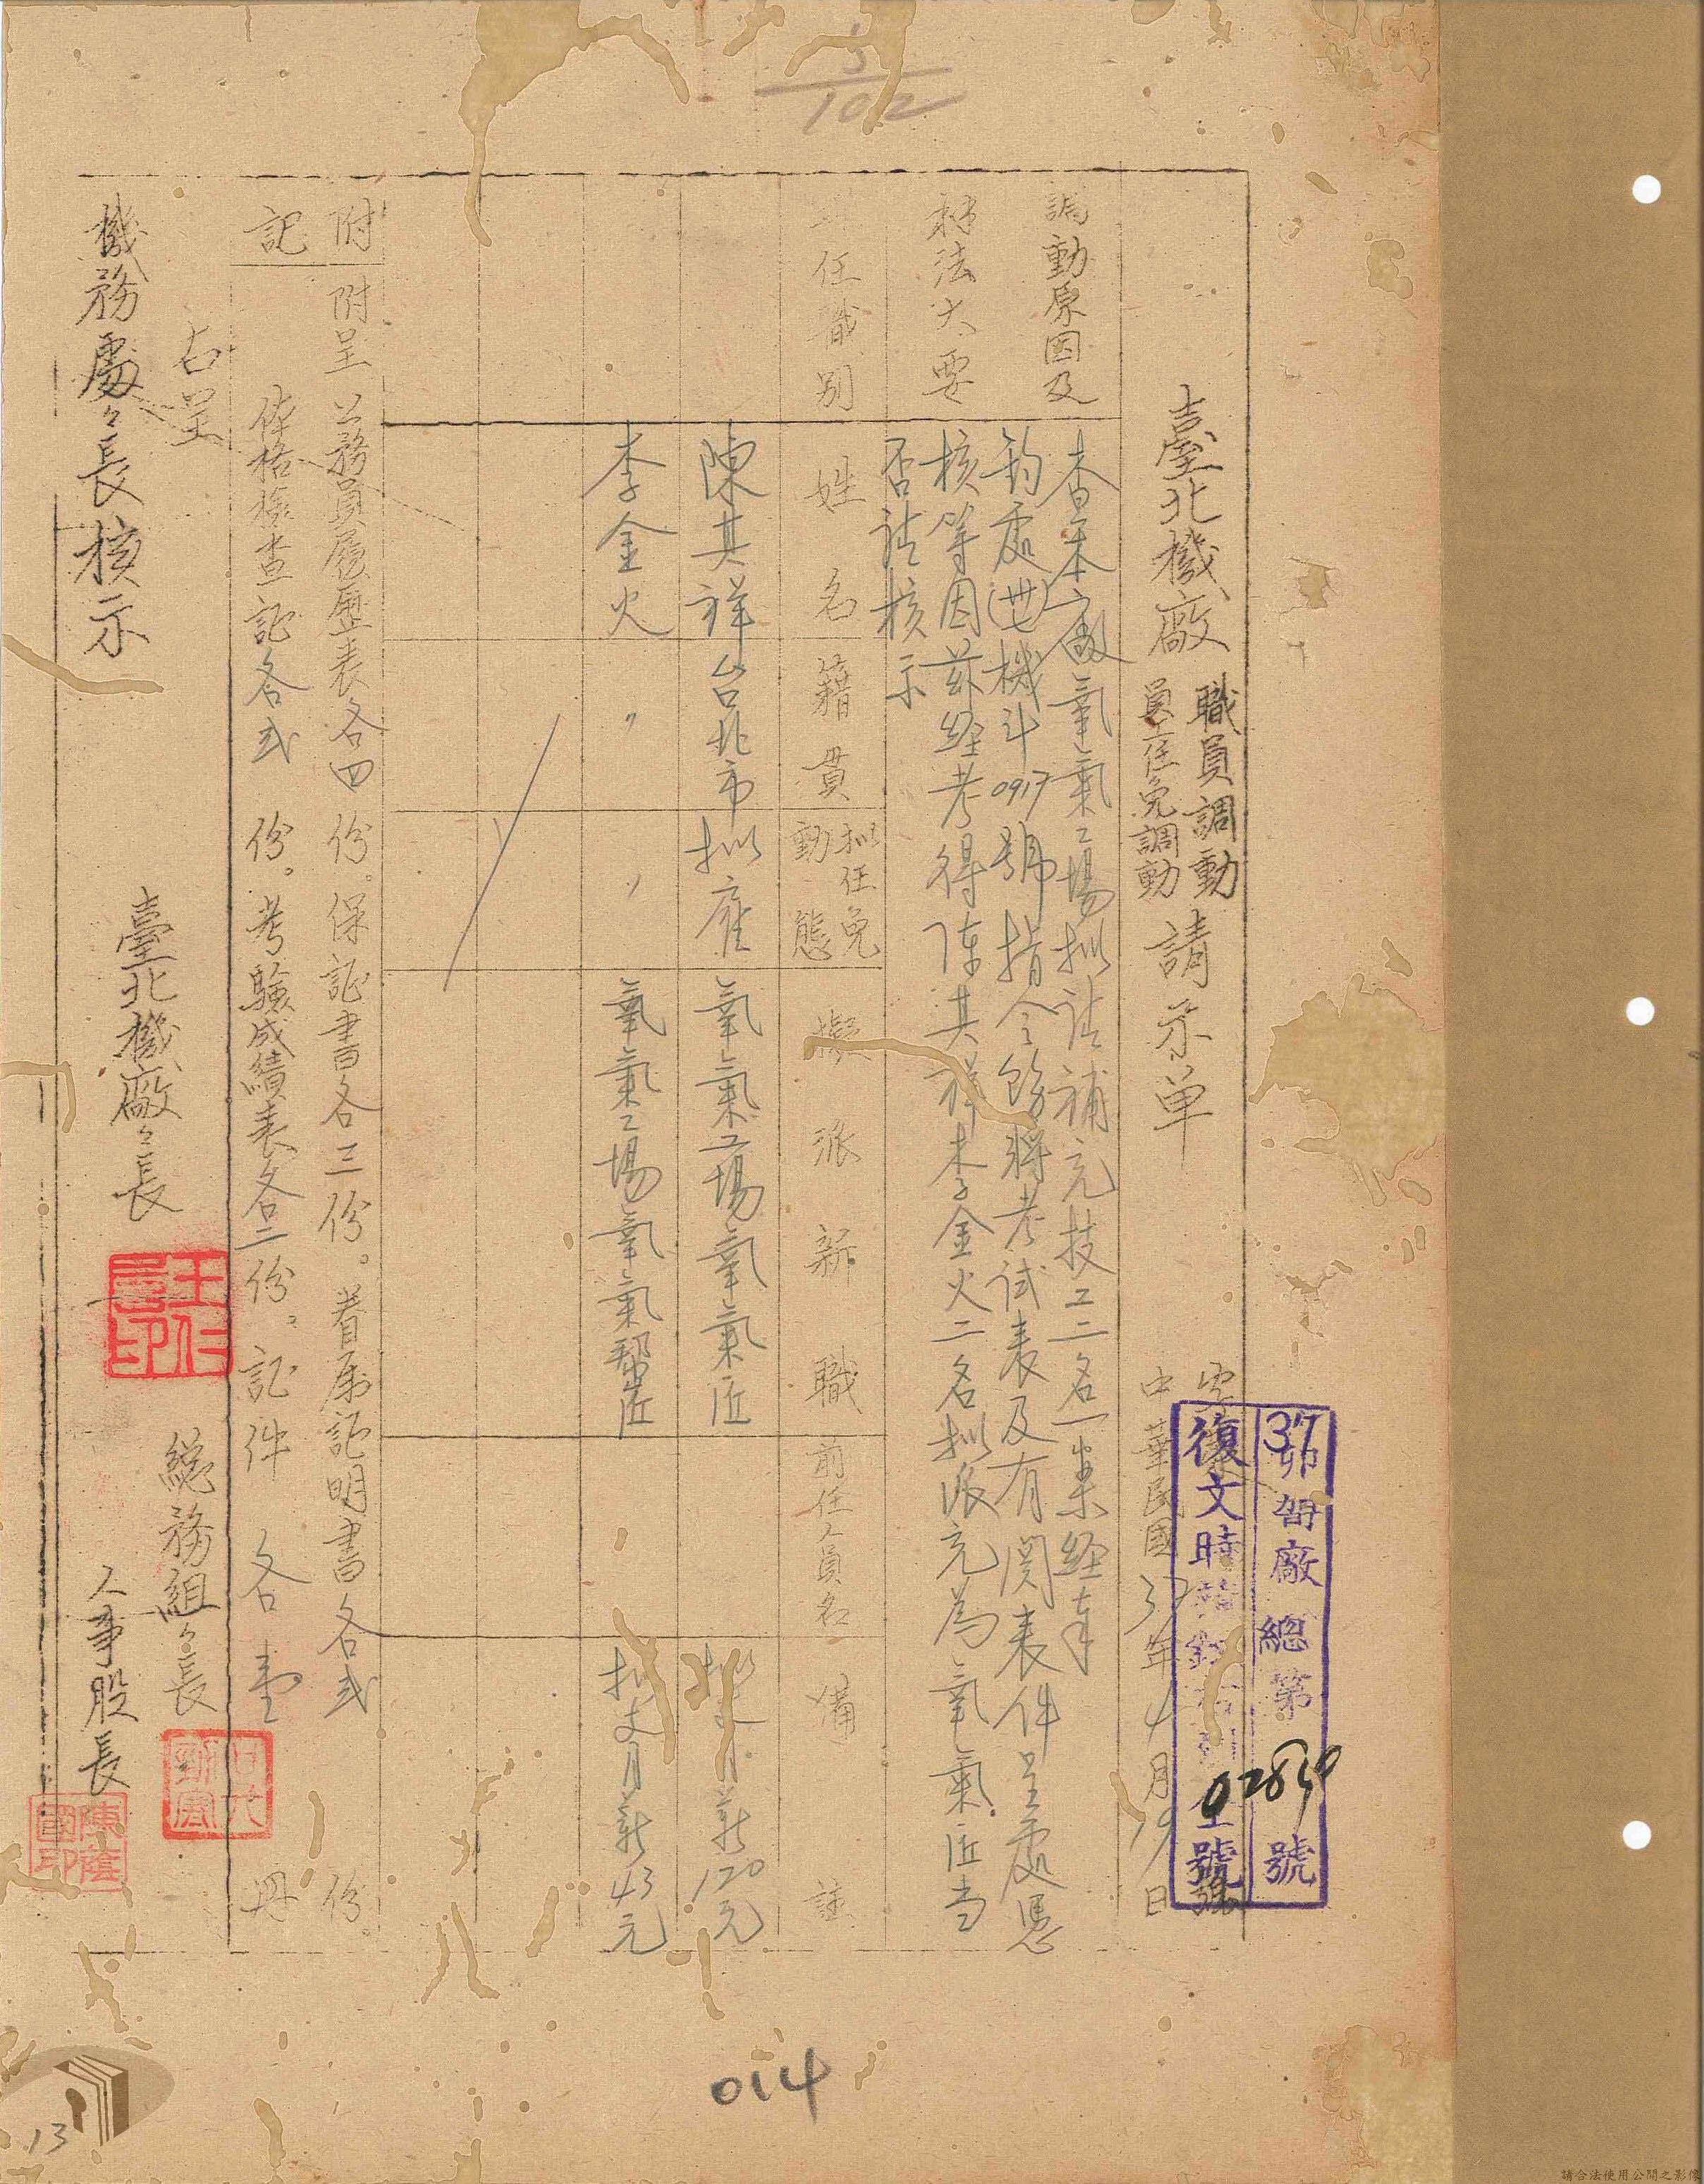 5/102
37 卯 廠總第02850號
復文時
號
臺北機廠 職員調動 請示单
員工任免調動
中華民國37年4月19日
調動原因及
辦法大要
查本廠氧氣工場拟請補充技工二名一案経奉
鈞處(卅七)機斗0917號指令飭將考試表及有関表件呈處憑
核等因茲経考得陳其祥李金火二名拟派充為氧氣匠当
否請核示
任職別
姓名
籍貫
拟任免
動態
擬派新職
前任人員名
備註
陳其祥
台北市
拟雇
氧氣工場氧氣匠
拟支月薪120元
李金火
〃
〃
氧氣工場氧氣幫匠
拟支月薪43元
附記
附呈 公務員履歷表各四份。保証書各三份。眷屬証明書各弍份。
体格檢查記各弍份。考驗成績表各二份。証件各壹冊
右呈
機務處々長核示
臺北機廠々長
總務組々長
人事股長
陳蔭國印
014
13
請合法使用公開之影像